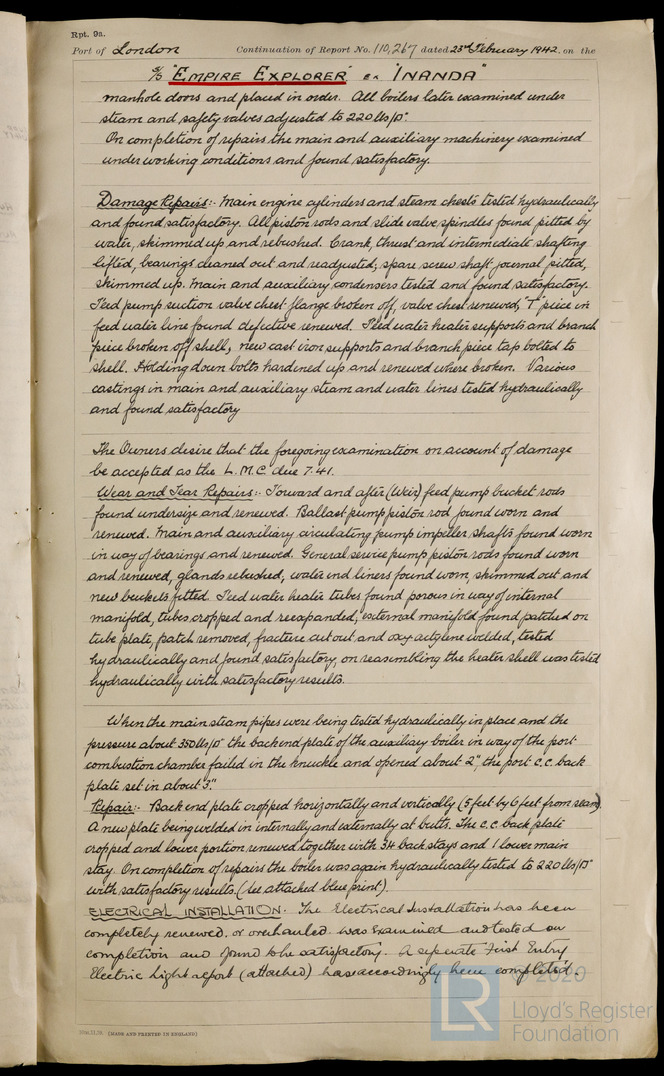 Rpt. 9a.
Port of London Continuation of Report No. 110,267 dated 23rd February 1942, on the
S/S "EMPIRE EXPLORER" ex "INANDA"
manhole doors and placed in order. All boilers later examined under
steam and safety valves adjusted to 220 lbs/□".
On completion of repairs the main and auxiliary machinery examined
under working conditions and found satisfactory.
Damage Repairs:- Main engine cylinders and steam chests tested hydraulically
and found satisfactory. All piston rods and slide valve spindles found pitted by
water, skimmed up and rebushed. Crank, thrust and intermediate shafting
lifted, bearings cleaned out and readjusted; spare screw shaft journal pitted,
skimmed up. Main and auxiliary condensers tested and found satisfactory.
Feed pump suction valve chest flange broken off, valve chest renewed, "T" piece in
feed water line found defective renewed. Feed water heater supports and branch
piece broken off shell, new cast iron supports and branch piece tap bolted to
shell. Holding down bolts hardened up and renewed where broken. Various
castings in main and auxiliary steam and water lines tested hydraulically
and found satisfactory
The Owners desire that the foregoing examination on account of damage
be accepted as the L.M.C. due 7.41.
Wear and Tear Repairs:- Forward and after (Weir) feed pump bucket rods
found undersize and renewed. Ballast pump piston rod found worn and
renewed. Main and auxiliary circulating pump impeller shafts found worn
in way of bearings and renewed. General service pump piston rods found worn
and renewed, glands rebushed, water end liners found worn, skimmed out and
new buckets fitted. Feed water heater tubes found porous in way of internal
manifold, tubes cropped and reexpanded, external manifold found patched on
tube plate, patch removed, fracture cut out and oxy actylene welded, tested
hydraulically and found satisfactory, on reasembling the heater shell was tested
hydraulically with satisfactory results.
When the main steam pipes were being tested hydraulically in place and the
pressure about 350 lbs/□" the back end plate of the auxiliary boiler in way of the port
combustion chamber failed in the knuckle and opened about 2", the port c.c. back
plate set in about 3".
Repair:- Back end plate cropped horizontally and vertically (5 feet by 6 feet from seam)
A new plate being welded in internally and externally at butts. The C.C. back plate
cropped and lower portion renewed together with 34 back stays and 1 lower main
stay. On completion of repairs the boiler was again hydraulically tested to 220 lbs/□"
with satisfactory results. (See attached blue print).
ELECTRICAL INSTALLATION. The Electrical Installation has been
completely renewed, or overhauled. was examined and tested on
completion and found to be satisfactory. A separate First Entry
Electric Light report (attached) has accordingly been completed.
2020
LR
Lloyd's Register
Foundation
(MADE AND PRINTED IN ENGLAND)